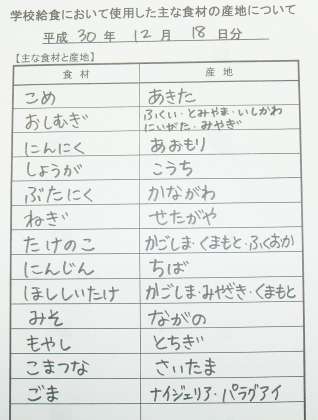 学校給食において使用した主な食材の産地について
平成 30 年 12 月 18 日分
【主な食材と産地】
食材 産地
こめ あきた
おしむぎ ふくい・とみやま・いしかわ
にいがた・みやぎ
にんにく あおもり
しょうが こうち
ぶたにく かながわ
ねぎ せたがや
たけのこ かごしま・くまもと・ふくおか
にんじん ちば
ほししいたけ かごしま・みやざき・くまもと
みそ ながの
もやし とちぎ
こまつな さいたま
ごま ナイジェリア・パラグアイ